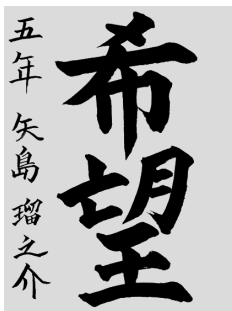 希望
五年 矢島 瑠之介